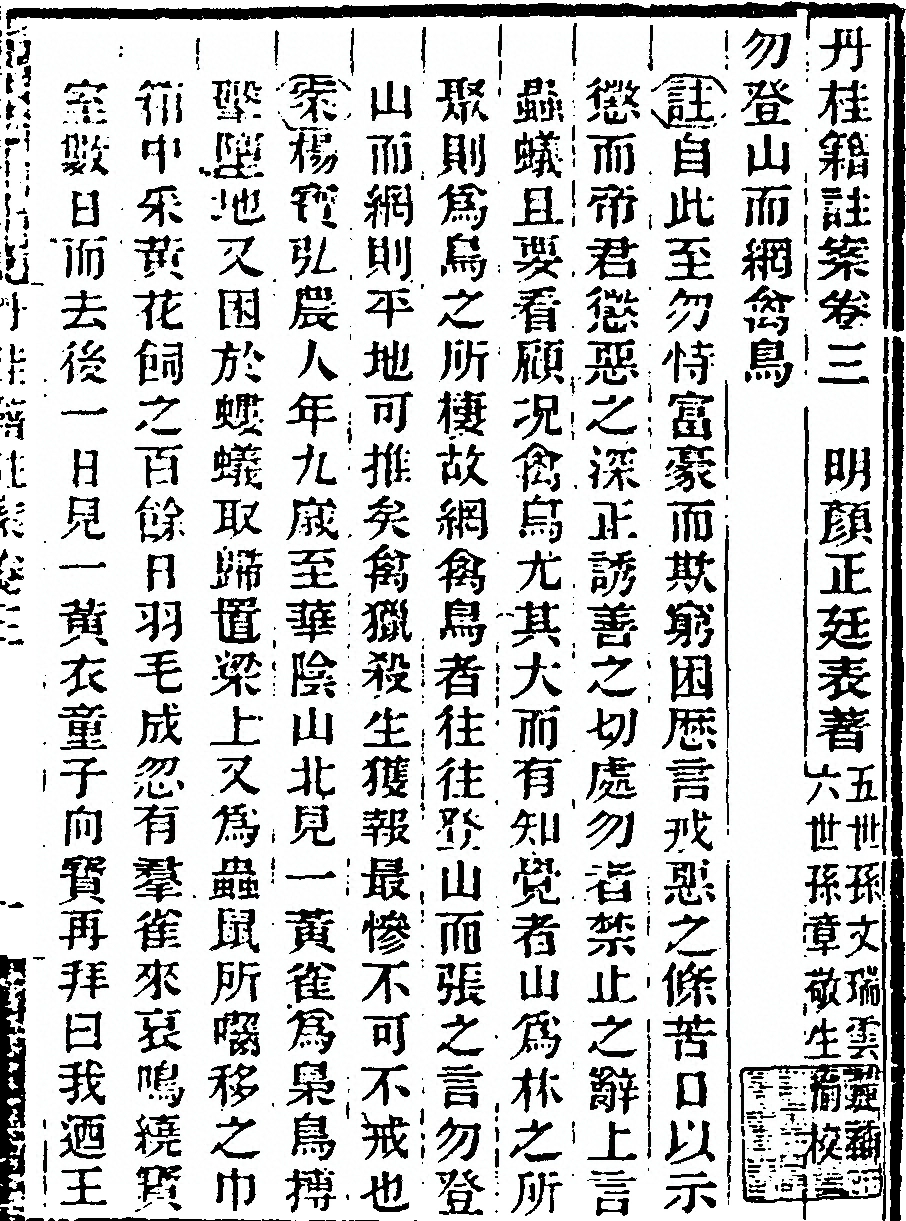 丹桂籍註案卷三　明顏正廷表著
五世孫文瑞雲
六世孫章敬生 校
勿登山而網禽鳥
註自此至勿恃富豪而欺窮困歷言戒惡之條苦口以示
懲而帝君懲惡之深正誘善之切處勿者禁止之辭上言
蟲蟻且要看顧况禽鳥尤其大而有知覺者山爲林之所
聚則爲鳥之所棲故網禽鳥者往往登山而張之言勿登
山而網則平地可推矣禽獵殺生獲報最慘不可不戒也
案楊寶弘農人年九歲至華陰山北見一黃雀爲梟鳥搏
擊墮地又困於螻蟻取歸置梁上又爲蟲鼠所嚙移之巾
箱中采黃花飼之百餘日羽毛成忽有羣雀來哀鳴繞寶
室數日而去後一日見一黃衣童子向寶再拜曰我迺王
丹桂籍註案卷三
一